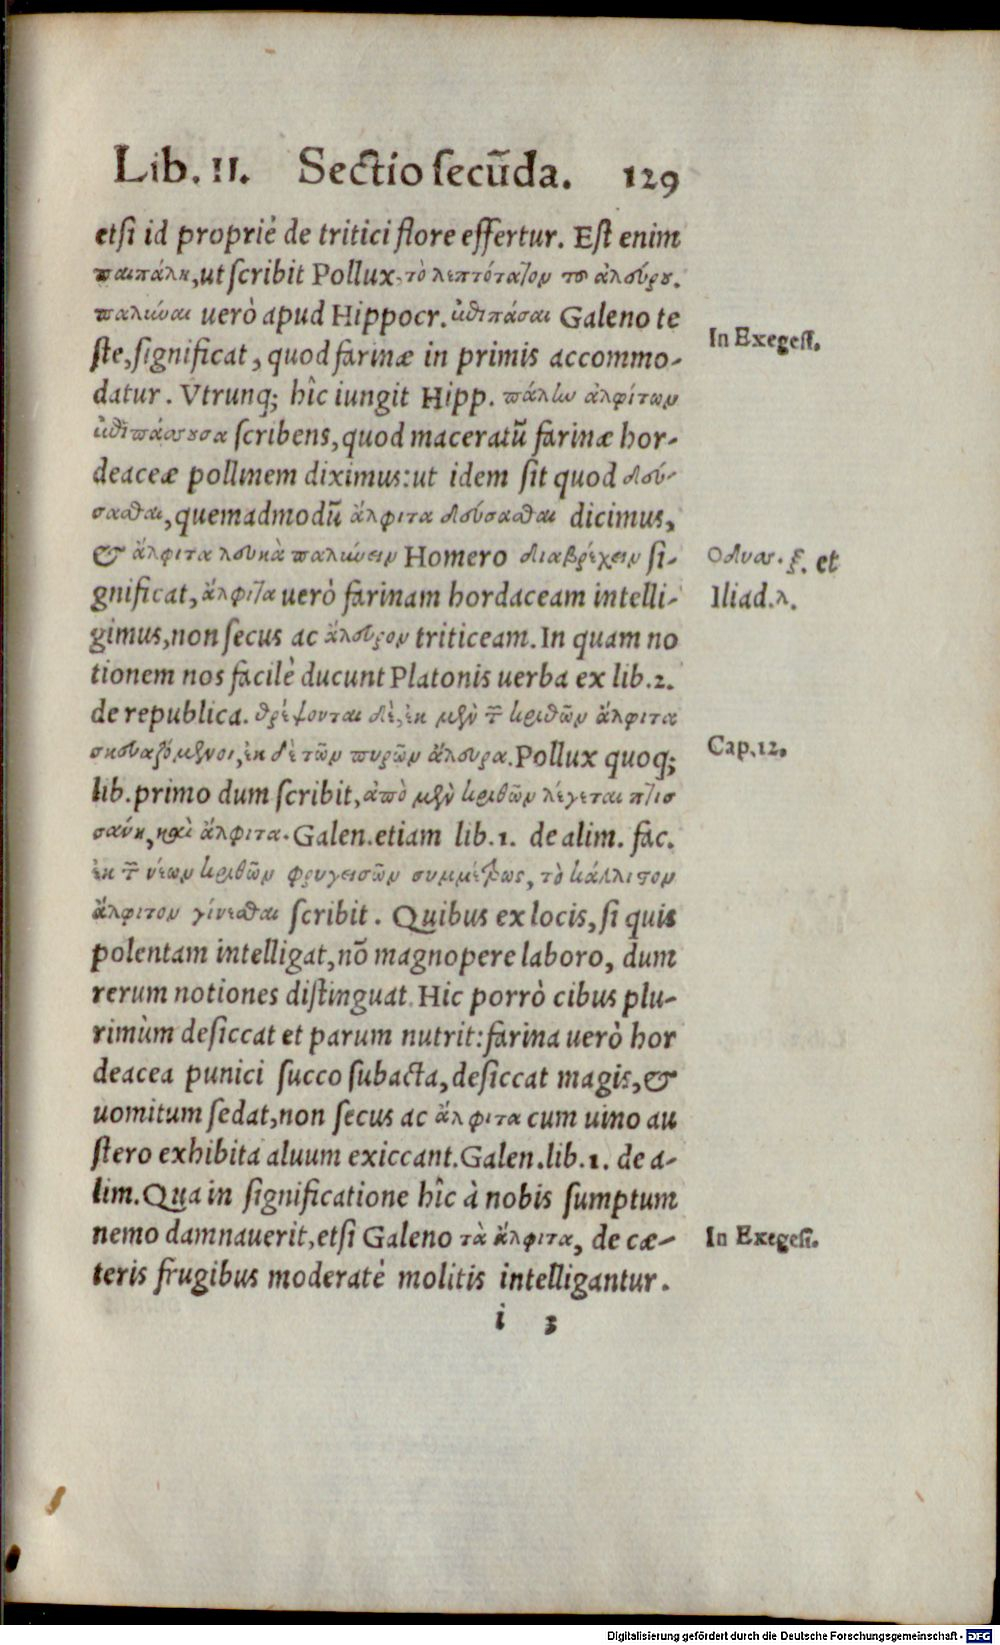 Lib. II. Sectio secũda. 129
etsi id propriè de tritici flore effertur. Est enim
παιπάλη, ut scribit Pollux, τὸ λεπτότατον τοῦ ἀλεύρου.
παλιῶαι uerò apud Hippocr. ἐπιπάσαι Galeno te
ste, significat, quod farinæ in primis accommo-
In Exegesi.
datur. Vtrunq; hîc iungit Hipp. πάλην ἀλφίτων
ἐπιπάσσουσα scribens, quod maceratũ farinæ hor-
deaceæ pollinem diximus: ut idem sit quod δεύ-
σασθαι, quemadmodũ ἄλφιτα δεύσασθαι dicimus,
& ἄλφιτα λευκὰ παλιώειν Homero διαβρέχειν si-
Οδυσ. ξ. et
gnificat, ἄλφιτα uerò farinam hordaceam intelli-
Iliad. λ.
gimus, non secus ac ἄλευρον triticeam. In quam no
tionem nos facilè ducunt Platonis uerba ex lib. 2.
de republica. θρέψονται δὲ, ἐκ μὲν τῶν κριθῶν ἄλφιτα
σκευαζόμενοι, ἐκ δὲ τῶν πυρῶν ἄλευρα. Pollux quoq;
Cap. 12.
lib. primo dum scribit, ἀπὸ μὲν κριθῶν λέγεται πτισ
σάνη, καὶ ἄλφιτα. Galen. etiam lib. 1. de alim. fac.
ἐκ τῶν νέων κριθῶν φρυγεισῶν συμμέτρως, τὸ κάλλιστον
ἄλφιτον γίνεσθαι scribit. Quibus ex locis, si quis
polentam intelligat, nõ magnopere laboro, dum
rerum notiones distinguat. Hic porrò cibus plu-
rimùm desiccat et parum nutrit: farina uerò hor
deacea punici succo subacta, desiccat magis, &
uomitum sedat, non secus ac ἄλφιτα cum uino au
stero exhibita aluum exiccant. Galen. lib. 1. de a-
lim. Qua in significatione hîc à nobis sumptum
nemo damnauerit, etsi Galeno τὰ ἄλφιτα, de cæ-
In Exegesi.
teris frugibus moderatè molitis intelligantur.
i 3
Digitalisierung gefördert durch die Deutsche Forschungsgemeinschaft - DFG